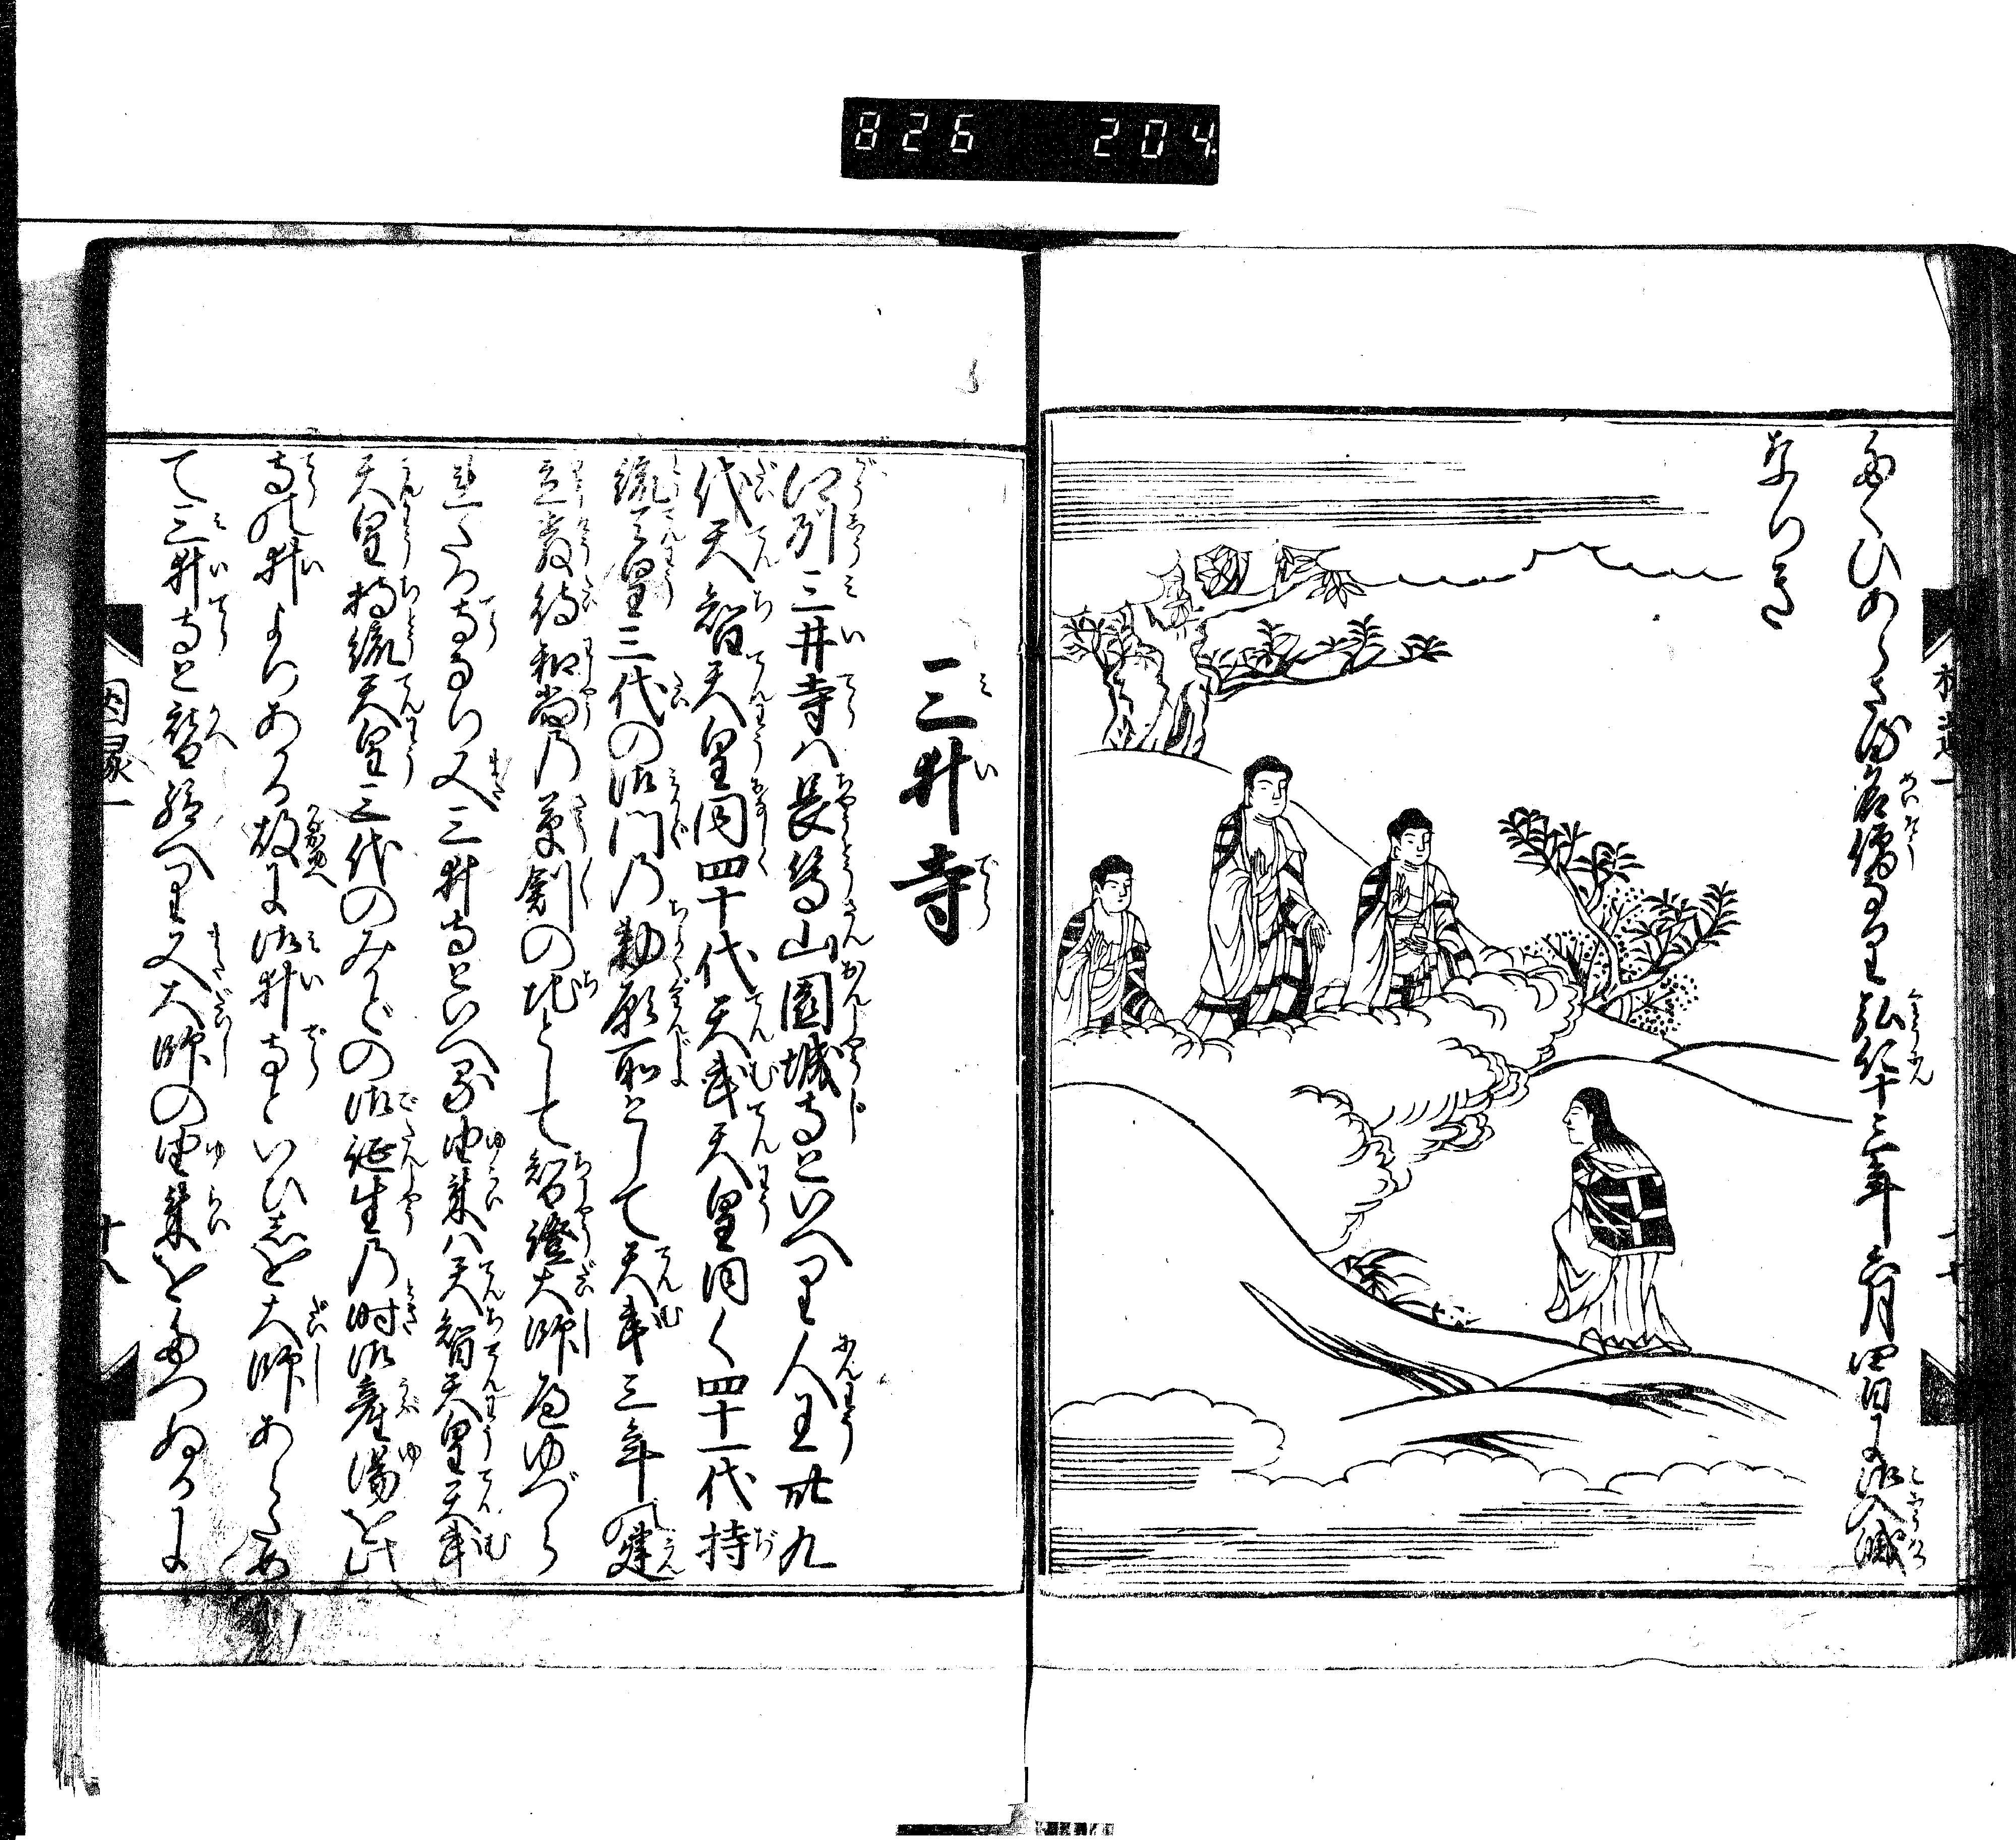 826 204
たくひあらざる名僧なり弘仁十三年六月四日に御入滅
なりき
三井寺
江列三井寺ハ長等山園城寺といへり人王卅九
代天智天皇同四十代天武天皇同く四十一代持
統天皇三代の御門乃勅願所として天武三年の建
立教待和尚乃草創の地として智證大師へゆづら
れたる寺なり又三井寺といへる由来ハ天智天皇天武
天皇持統天皇三代のみかどの御誕生乃時御産湯を此
寺の井よりある故に御井寺といひしを大師あらため
て三井寺と替給へり又大師の由来をたづぬるに
因縁一
十八